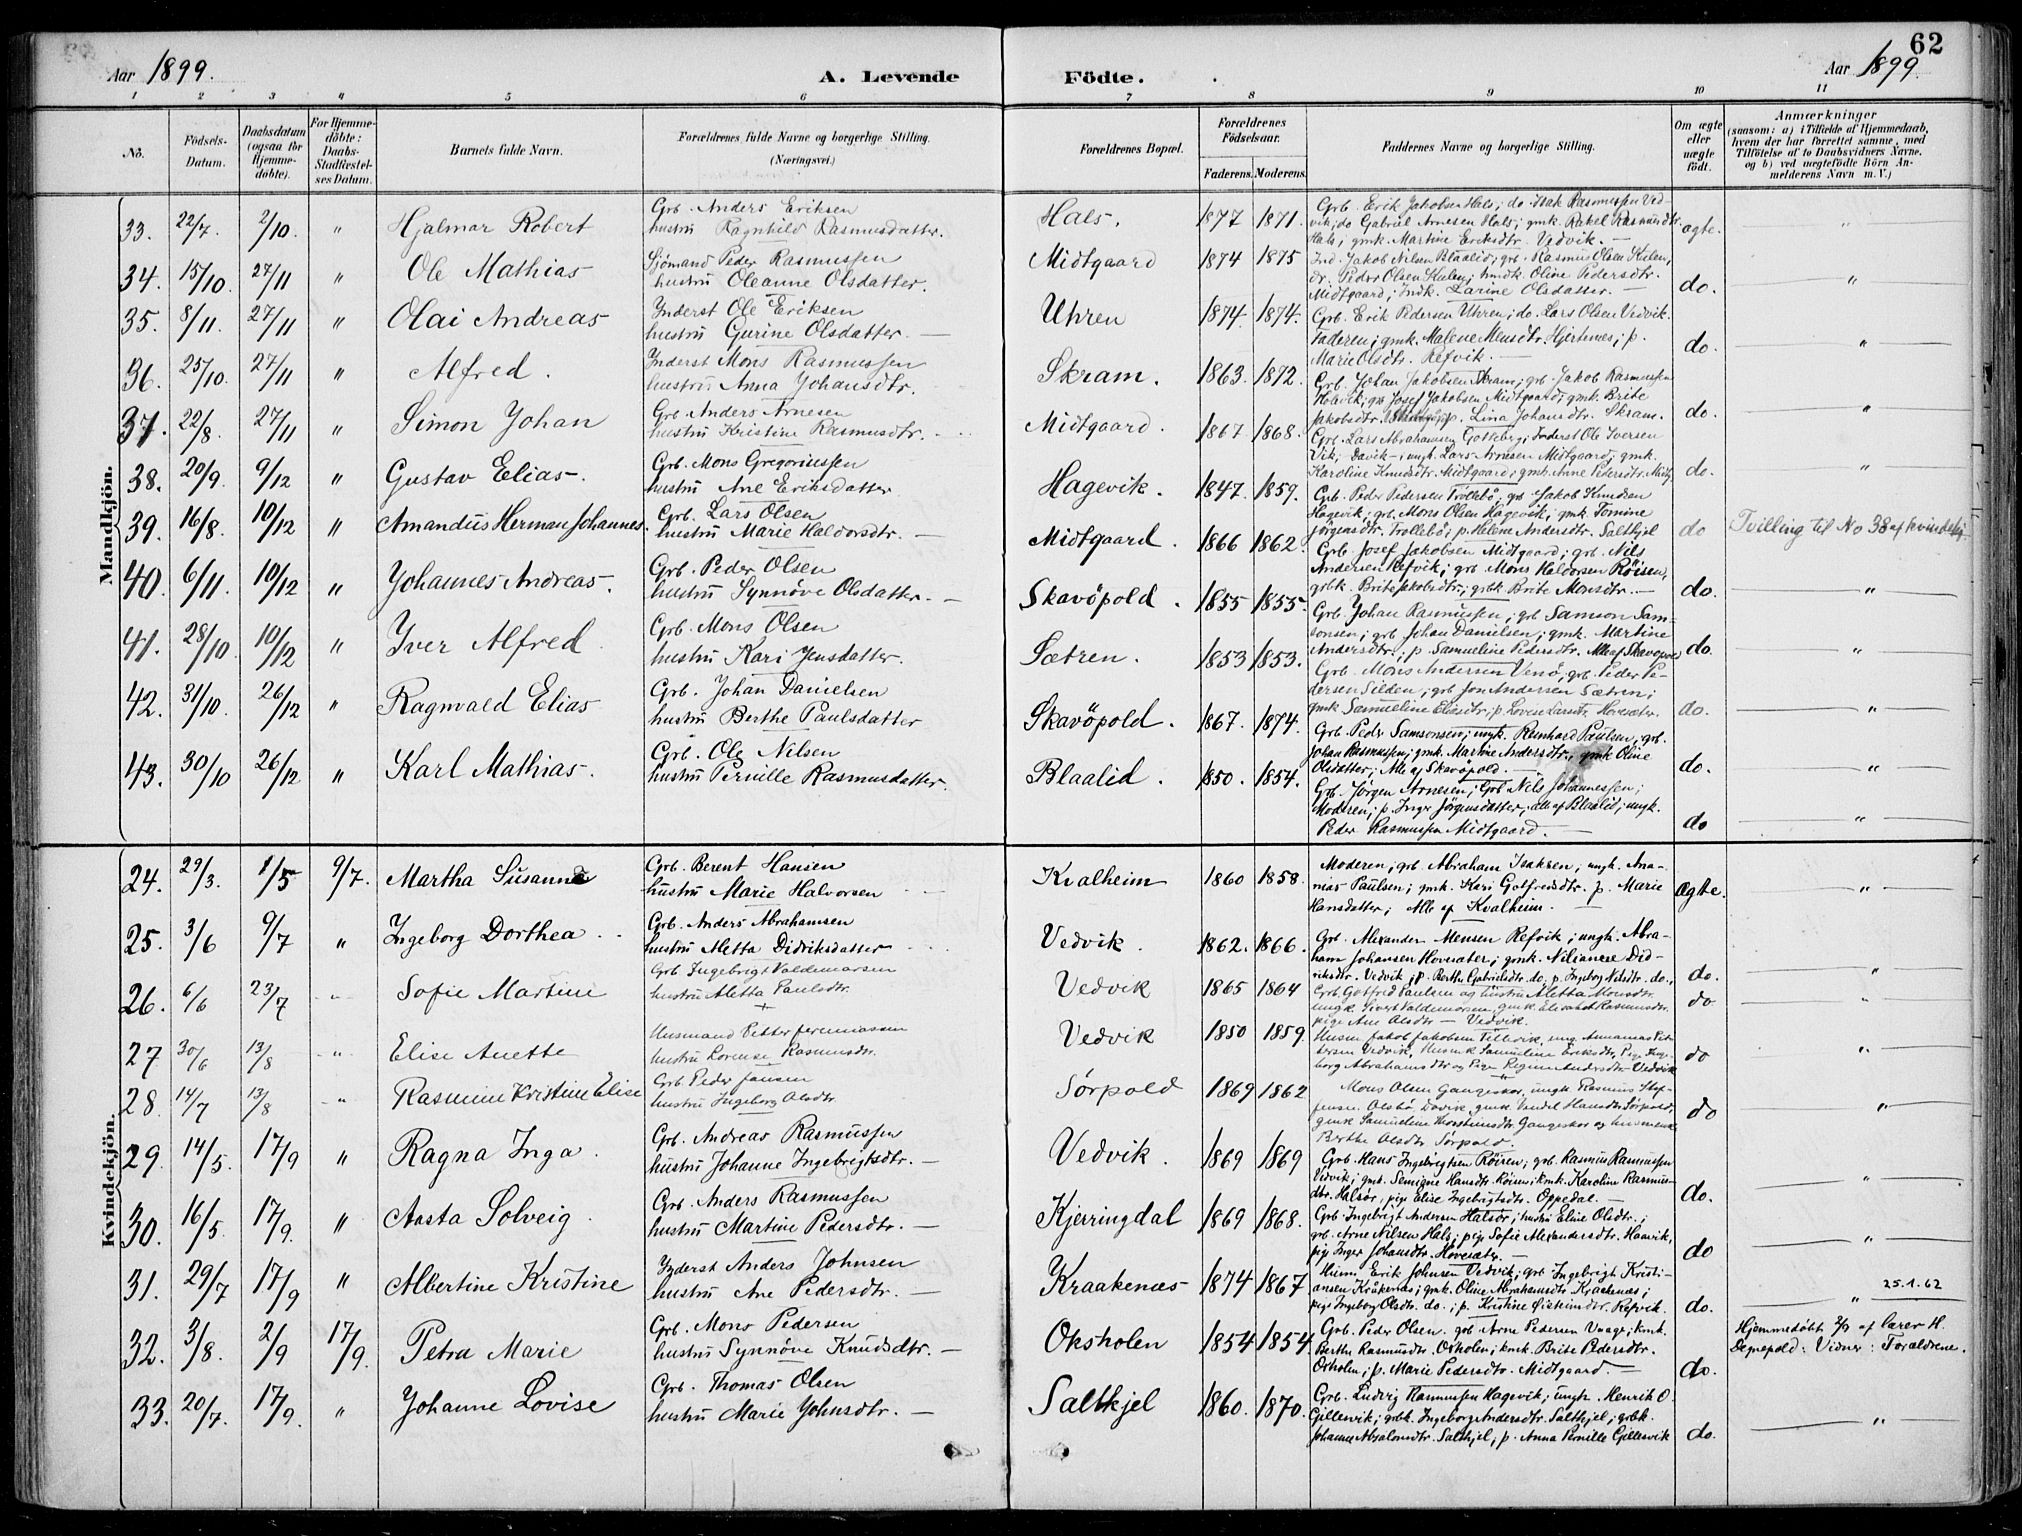 62
Aar 1899.
A. Levende Födte.
Aar 1899
1 2 3 4 5 6 7 8 9 10 11
No.
Födsels-Datum.
Daabsdatum (ogsaa for Hjemmedöbte).
For Hjemmedöbte: Daabs-Stadfæstelses Datum.
Barnets fulde Navn.
Forældrenes fulde Navne og borgerlige Stilling. (Næringsvei.)
Forældrenes Bopæl.
Forældrenes Födselsaar.
Faderens. Moderens.
Faddernes Navne og borgerlige Stilling.
Om ægte eller uægte födt.
Anmærkninger
(saasom: a) i Tilfælde af Hjemmedaab, hvem der har forrettet samme, med Tilföielse af to Daabsvidners Navne. og b) ved uægtefödte Börn Anmelderens Navn m. V.)
Mandkjön.
33. 22/7 2/10 " Hjalmar Robert
Grb. Anders Eriksen
hustru Ragnhild Rasmusdatter.
Hals. 1877 1871.
Grb. Erik Jakobsen Hals; do. Isak Rasmussen Ved-
vik; do Gabriel Arnesen Hals; gmk. Rakel Rasmusdtr.
Hals; gmk. Martine Eriksdtr. Vedvik. —
ægte. "
34. 15/10. 27/11 " Ole Mathias
Sjömand Peder Rasmussen
hustru Oleanne Olsdatter.
Midtgaard 1874 1875
Ind. Jakob Nilsen Blaalid; grb. Rasmus Olsen
Peder Olsen Oline Pedersdtr.
Midtgaard; Indk. Larine Olsdatter. —
do. "
35. 8/11. 27/11 " Olai Andreas
Inderst Ole Eriksen
hustru Gurine Olsdatter. —
Uhren 1874. 1874.
Grb. Erik Pedersen Uhren; do. Lars Olsen Vedvik.
Faderen; gmk. Malene Mensdtr. Hjertenes; p.
Marie Olsdtr. Refvik. —
do. "
36. 25/10. 27/11 " Alfred.
Inderst Mons Rasmussen
hustru Anna Johansdtr.
Skram. 1863. 1872.
Grb. Johan Jakobsen Skram; grb. Jakob Rasmussen
Josef Jakobsen Midtgaard; gmk. Brite
Jakobsdtr. p. Lina Johansdtr. Skram.
do. "
37. 22/8. 27/11 " Simon Johan
Grb. Anders Arnesen
hustru Kristine Rasmusdtr.
Midtgaard. 1867 1868.
Grb. Lars Abrahamsen Gotteberg; Inderst Ole Iversen
Vik; Davik; ungk. Lars Arnesen Midtgaard; gmk.
Karoline Knudsdtr. Midtgaard; gmk. Anne Pedersdtr. Midtg.
do. "
38. 20/9. 9/12 " Gustav Elias.
Grb. Mons Gregoriussen
hustru Ane Eriksdatter
Hagevik. 1847. 1859.
Grb. Peder Pedersen Trollebö, grb Jakob Knudsen
Hagevik; grb. Mons Olsen Hagevik; gmk. Tomine
Jörgensdtr. Trollebö; p. Helene Andersdtr. Saltkjel
do
39. 16/8. 10/12 " Amandus Herman Johannes.
Grb. Lars Olsen
hustru Marie Haldorsdtr. —
Midtgaard. 1866 1862.
Grb. Josef Jakobsen Midtgaard; grb. Nils
Andersen Refvik; grb Mons Haldorsen Röisen,
grbk. Brite Jakobsdtr; grbk Brite Monsdtr. —
do.
Tvilling til No 38 af kvindekj.
40. 6/11. 10/12 " Johannes Andreas.
Grb. Peder Olsen
hustru Synnöve Olsdatter. —
Skavöpold. 1855 1855.
Grb. Johan Rasmussen; grb Samson Sam-
sonsen; grb. Johan Danielsen; gmk. Martine
Andersdtr.; p Samueline Pedersdtr. Alle af Skavöpold
do. "
41. 28/10. 10/12 " Iver Alfred
Grb. Mons Olsen
hustru Kari Jensdatter.
Sætren. 1853 1853.
Grb. Mons Andersen Venö; grb. Peder Pe-
dersen Silden; grb Jon Andersen Sætren;
gmk Samueline Eliasdtr; p. Lovise Larsdtr. Hovesæter.
do. "
42. 31/10. 26/12 " Ragnvald Elias
Grb. Johan Danielsen
hustru Berthe Paulsdatter
Skavöpold. 1867. 1874.
Grb. Peder Samsonsen; ungk. Reinhard Paulsen; grb.
Johan Rasmussen; gmk. Martine Andersdtr., gmk Oline
Olsdatter; Alle af Skavöpold. —
do. "
43. 30/10 26/12 " Karl Mathias.
Grb. Ole Nilsen
hustru Pernille Rasmusdatter.
Blaalid. 1850. 1854.
Grb. Jörgen Arnesen; Grb Nils Johannessen;
Moderen; p. Inger Jörgensdatter; alle af Blaalid; ungk.
Peder Rasmussen Midtgaard. —
do "
Kvindekjön.
24. 29/3. 1/5 9/7. Martha Susanne
Grb. Berent Hansen
hustru Marie Halvorsen
Kvalheim 1860 1858.
Moderen; grb. Abraham Isaksen; ungk. Ana-
nias Paulsen; gmk. Kari Gotfredsdtr. p. Marie
Hansdatter; Alle af Kvalheim. —
ægte. "
25. 3/6 9/7 " Ingeborg Dorthea
Grb. Anders Abrahamsen
hustru Aletta Didriksdatter
Vedvik. 1862. 1866.
Grb. Alexander Mensen Refvik; ungk. Abra-
ham Johansen Hovesæter; gmk. Nilianese Did-
riksdtr. Vedvik; p. Berthe Gabrielsdtr. do, p. Ingeborg Nilsdtr. do.
do. "
26. 6/6 23/7 " Sofie Martine
Grb Ingebrigt Valdemarsen
hustru Aletta Paulsdtr.
Vedvik 1865 1864
Grb. Gotfred Paulsen og hustru Aletta Monsdtr.
ungk. Sivert Valdemarsen, gmk. Elisabet Rasmusdtr.
pige Ane Olsdtr — Vedvik.
do "
27 30/6 13/8 " Elise Anette
Husmand Petter Jeremiassen
hustru Lorense Rasmusdtr.
Vedvik 1850 1859.
Husm Jakob Jakobsen ung. Annanias Pet-
tersen Vedvik, Husmk Samueline Eriksdtr, Pige Inge-
borg Abrahamsdtr og Pige Regine Andersdtr Vedvik
do "
28. 14/7 13/8 " Rasmine Kristine Elise
Grb Peder Jansen
hustru Ingeborg Olsdtr
Sörpold 1869 1862
Mons Olsen Gangeskar, ungk. Rasmus Stef-
fensen Davik, gmk Hansdtr Sörpold,
gmk Samueline Gangeskar og
Berthe Olsdtr Sörpold.
do "
29. 14/5. 17/9 " Ragna Inga.
Grb. Andreas Rasmussen
hustru Johanne Ingebrigtsdtr. —
Vedvik. 1869 1869
Grb. Hans Ingebrigtsen Röisen; grb. Rasmus Rasmussen
Vedvik; gmk. Hansdtr Röisen; kmk. Karoline Rasmus-
dtr. Halsör; pige Elise Ingebrigtsdtr. Oppedal. —
do. "
30. 16/5. 17/9. " Aasta Solveig.
Grb. Anders Rasmussen
hustru Martine Pedersdtr. —
Kjerringdal 1869 1868.
Grb. Ingebrigt Andersen Halsör; hustru Eline Olsdtr.;
grb. Arne Nilsen Hals; pige Sofie Alexandersdtr. Haavik,
pige Inger Johansdtr. Hovesæter. —
do "
31. 29/7 17/9 " Albertine Kristine
Inderst Anders Johnsen
hustru Ane Pedersdtr. —
Kraakenæs 1874 1867
Husm. Erik Johnsen Vedvik; grb. Ingebrigt Kristi-
ansen Kråkenæs; gmk. Oline Abrahamsdtr Kraakenæs;
pige Ingeborg Olsdtr. do.; p. Kristine Refvik.
do. "
25.1.62
32. 3/8. 2/9 17/9. Petra Marie
Grb. Mons Pedersen
hustru Synnöve Knudsdtr. —
Oksholen 1854 1854
Grb. Peder Olsen. grb Arne Pedersen Vaage; kmk.
Berthe Rasmusdtr. Oxholen; kmk. Brite Pedersdtr.
Oxholen; p. Marie Pedersdtr. Midtgaard. —
do.
Hjemmedöbt 2/9 af lærer H.
Depnepold: Vidner: Forældrene.
33. 20/7. 17/9. " Johanne Lovise
Grb. Thomas Olsen
hustru Marie Johnsdtr. —
Saltkjel 1860. 1870.
Grb. Ludvig Rasmussen Hagevik; ungk. Henrik O.
Gillesvik; grbk. Ingeborg Andersdtr. Saltkjel; grbk.
Johanne Absalonsdtr. Saltkjel; p. Anna Pernille Gillesvik
do. "